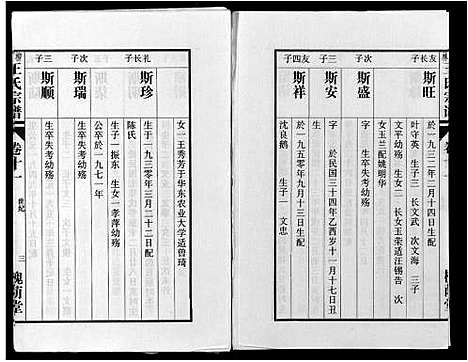 友长子
斯旺
於一九三二年二月十四日生配
叶守英 生子三 长文武 次文海 三子
文平幼殇 生女二 长女玉荣适汪锡告 次
女玉兰配姚明华
次子
斯盛
生卒失考幼殇
三子
斯安
字 於民国三十四年乙酉岁十一月十七日丑
时生卒失考幼殇
友四子
斯祥
於一九五〇年九月十三日生配
沈良鹅 生子一 文忠
王氏宗谱
卷十一
世纪
三
槐荫堂
女二王秀芳于华东农业大学适曾琦
礼长子
斯珍
生於一九三〇年三月二十二日配
陈氏
生子一振东 生女一孝萍幼殇
公卒於一九七一年
次子
斯瑞
生卒失考幼殇
三子
斯顺
生卒失考幼殇